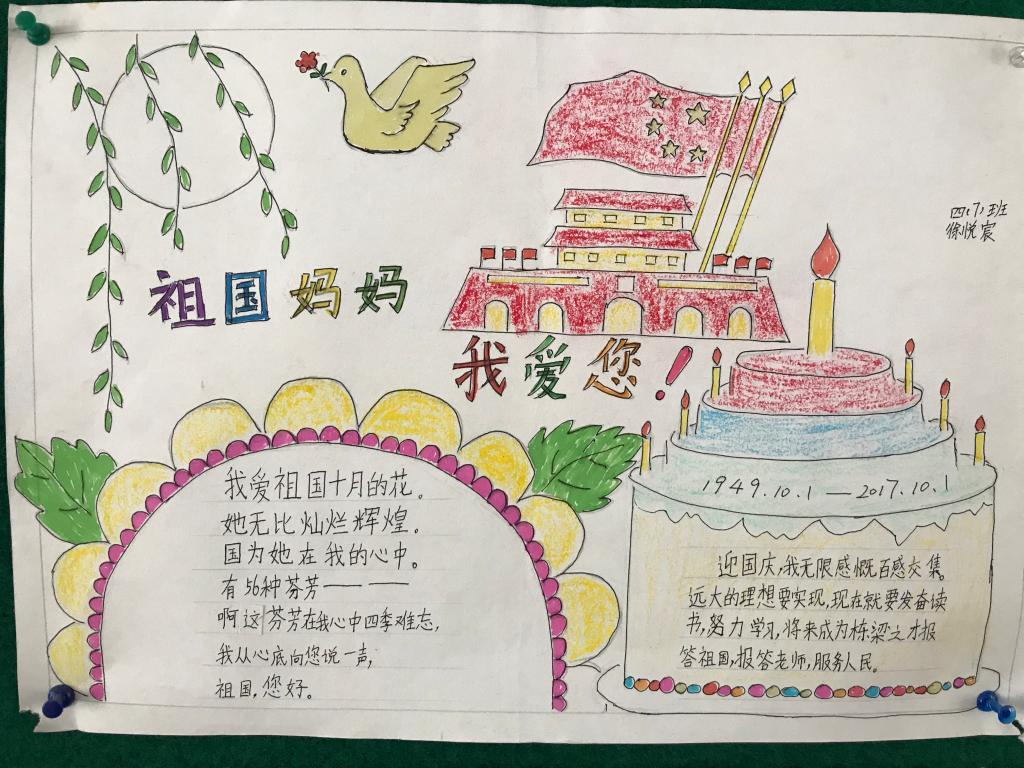 四(7)班
徐悦宸
祖国妈妈
我爱您!
我爱祖国十月的花。
她无比灿烂辉煌。
国为她在我的心中。
有56种芬芳————
啊这芬芳在我心中四季难忘,
我从心底向您说一声,
祖国,您好。
1949.10.1—2017.10.1
迎国庆,我无限感慨百感交集。
远大的理想要实现,现在就要发奋读
书,努力学习,将来成为栋梁之才报
答祖国,报答老师,服务人民。